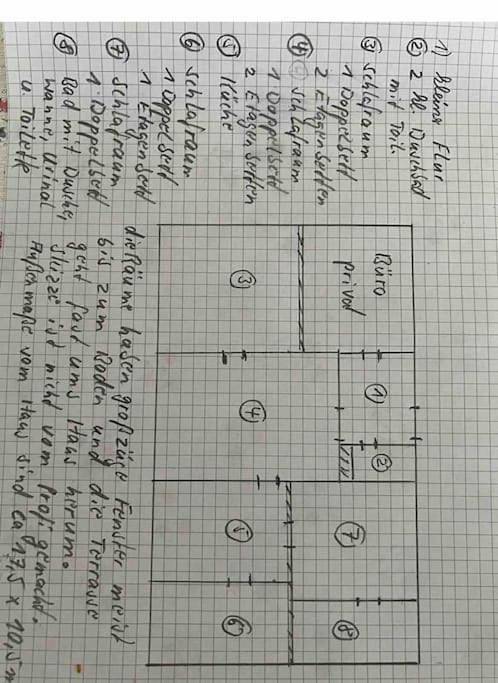 1) kleine Flur
② 2 kl. Duschbad
mit Toil.
③ Schlafraum
1 Doppelbett
2 Etagenbetten
④ Schlafraum
1 Doppelbett
2 Etagenbetten
⑤ Küche
⑥ Schlafraum
1 Doppelbett
1 Etagenbett
⑦ Schlafraum
1 Doppelbett
⑧ Bad mit Dusche,
wanne, Urinal
u. Toilette
Büro
privat
①
②
③
④
⑤
⑥
⑦
⑧
die Räume haben großzüge Fenster meist
bis zum Boden und die Terrasse
geht fast ums Haus herum.
Skizze ist nicht vom Profi gemacht.
Außenmaße vom Haus sind ca 17,5 x 10,5 m